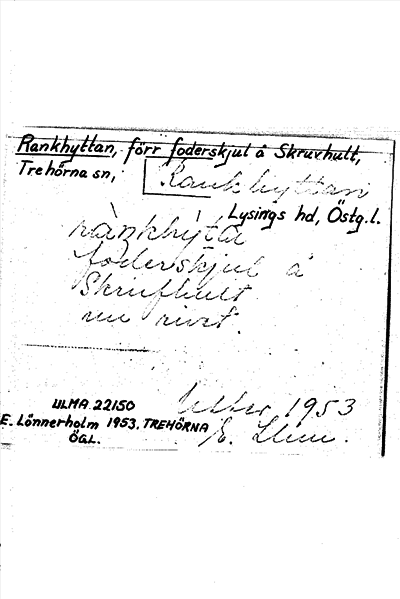 Rankhyttan, förr foderskjul å Skruvhult,
Trehörna sn,
Rankhyttan
Lysings hd, Östg.l.
rànkhýta
foderskjul å
Skrufhult
nu rivet.
ULMA 22150
E. Lönnerholm 1953. TREHÖRNA
ÖGL.
1953
E.